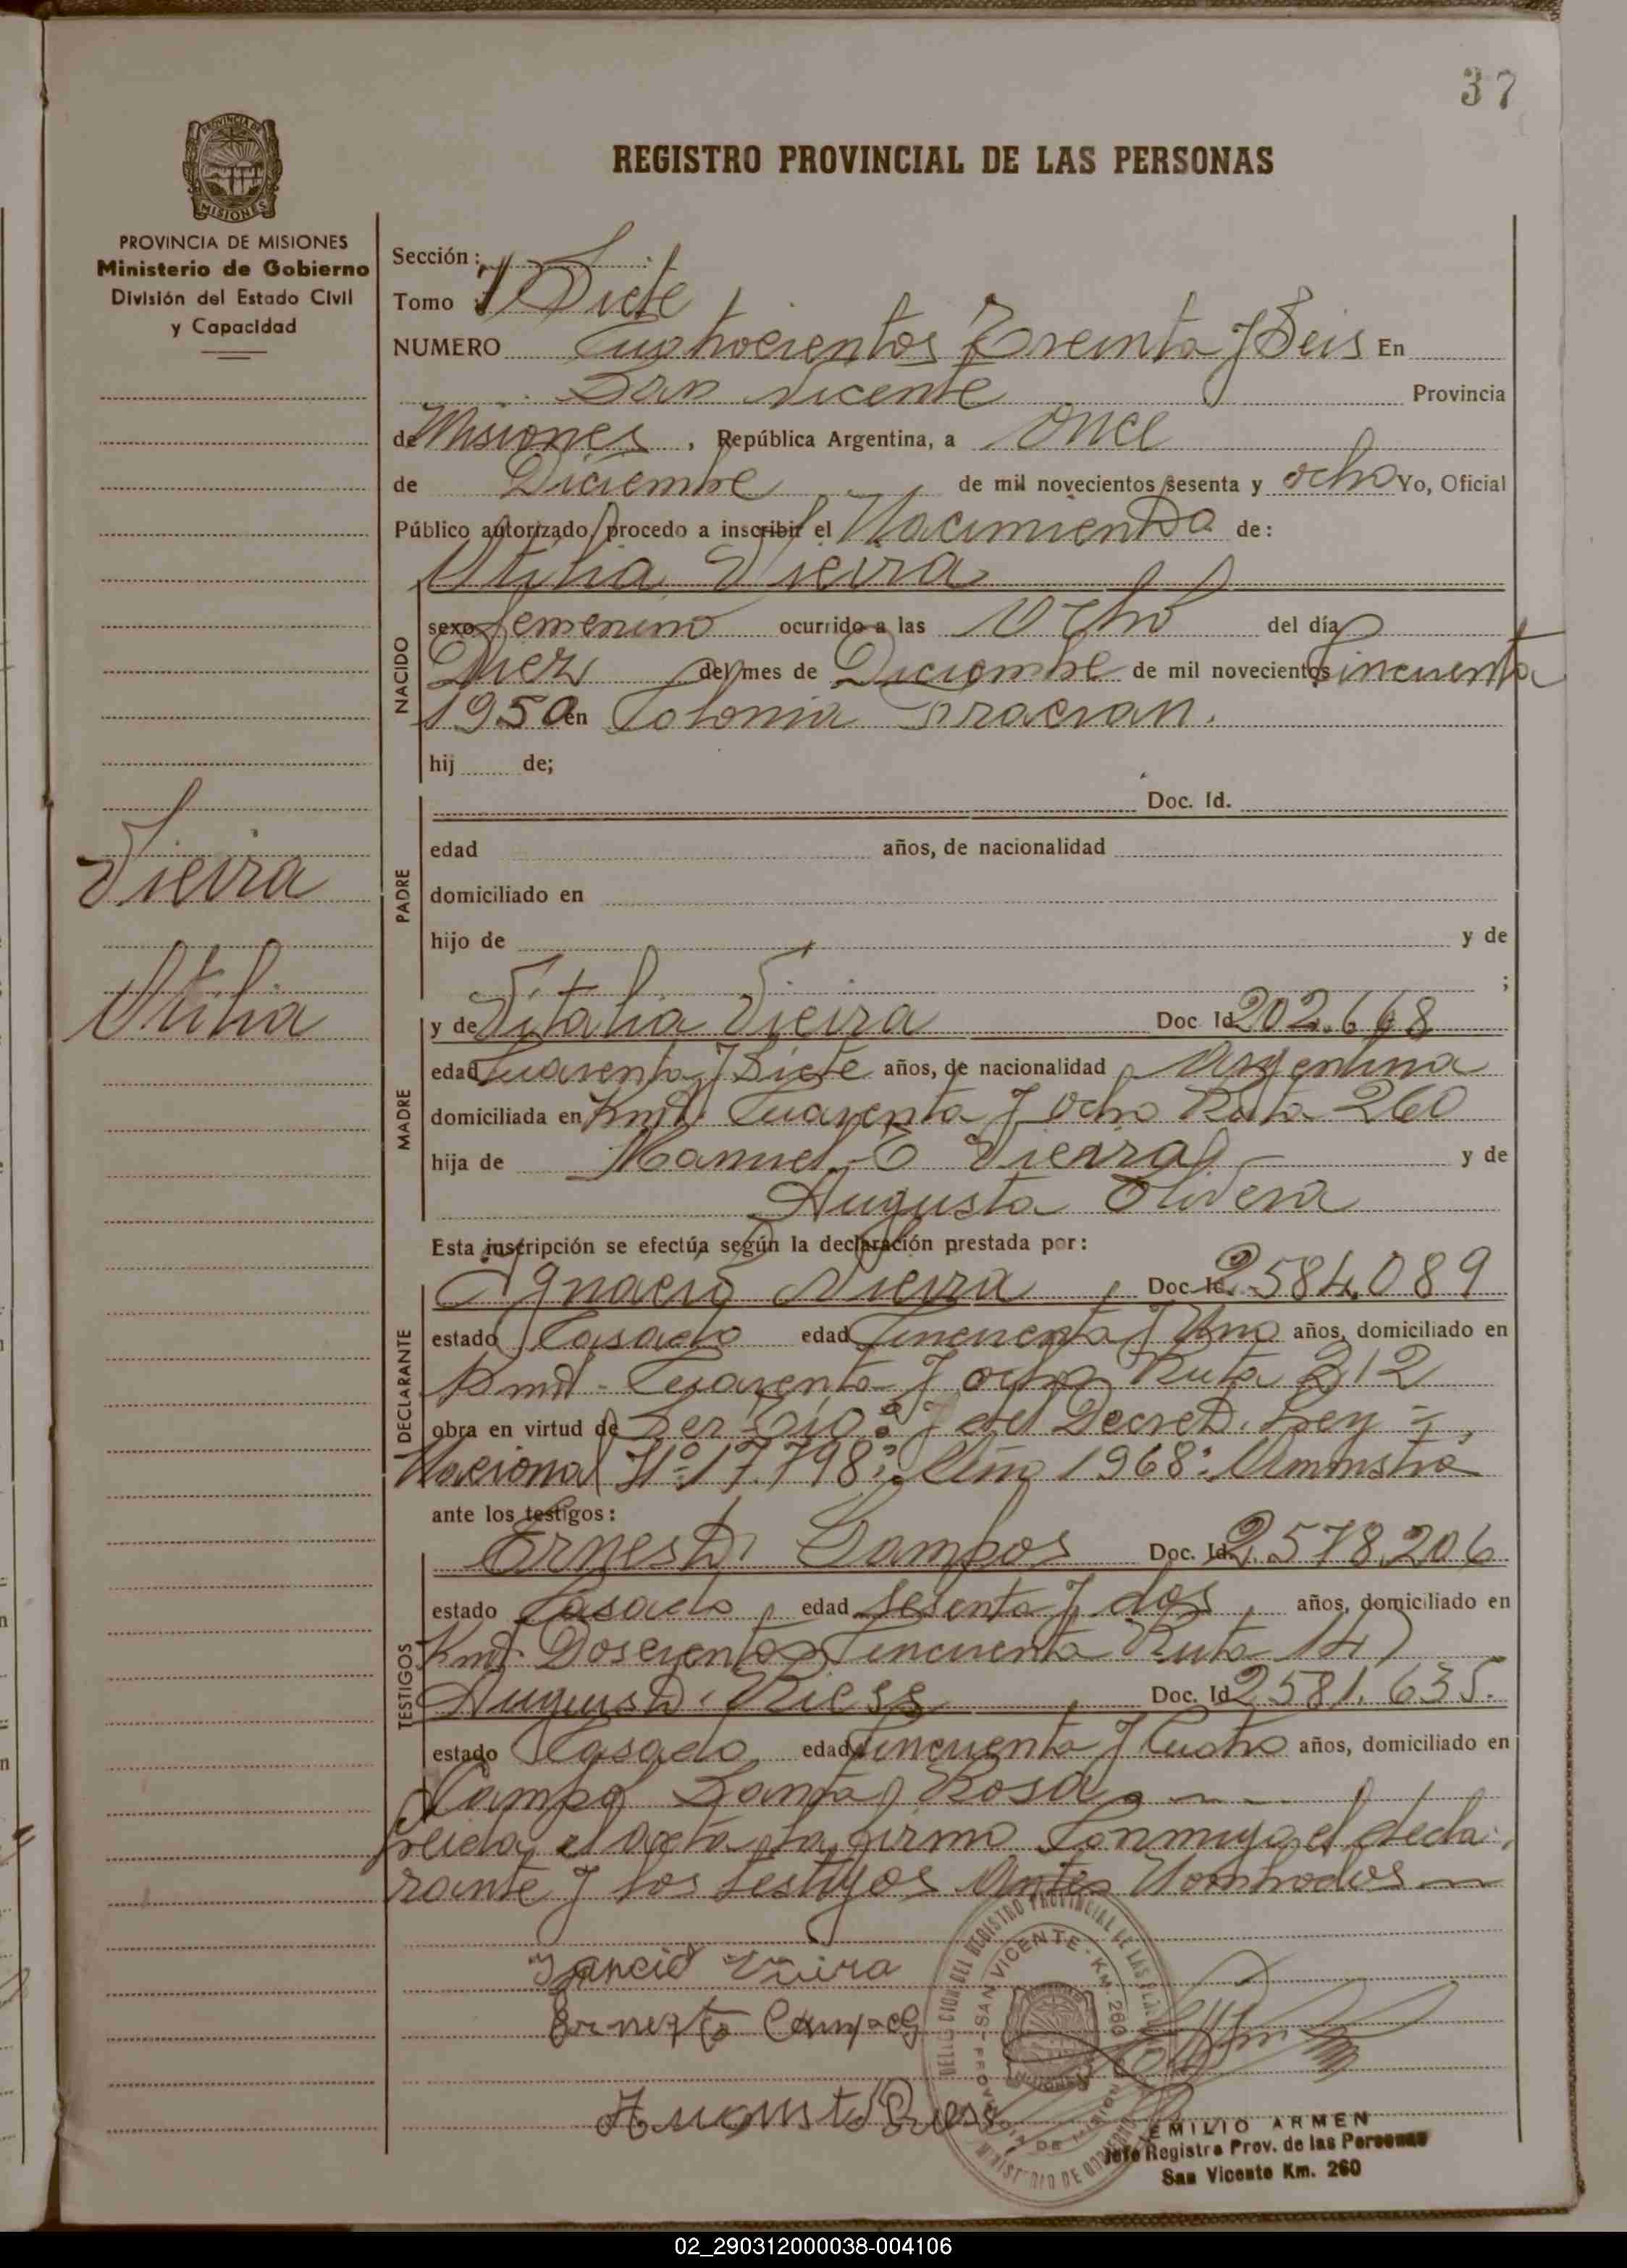 37
REGISTRO PROVINCIAL DE LAS PERSONAS
PROVINCIA DE MISIONES
Ministerio de Gobierno
División del Estado Civil
y Capacidad
Sección:
Tomo Siete
NUMERO Cuatrocientos Treinta y Seis En
San Vicente Provincia
de Misiones, República Argentina, a Once
de Diciembre de mil novecientos sesenta y ocho Yo, Oficial
Público autorizado, procedo a inscribir el Nacimiento de:
Utilia Vieira
NACIDO
sexo femenino ocurrido a las Ocho del día
Diez del mes de Diciembre de mil novecientos Cincuenta
1950 en Colonia
hij de;
PADRE
Doc. Id.
edad años, de nacionalidad
domiciliado en
hijo de y de
;
Vieira
Utilia
MADRE
y de Vitalia Vieira Doc Id 202.668
edad Cuarenta y Siete años, de nacionalidad Argentina
domiciliada en Kmt. Cuarenta y ocho Ruta 260
hija de Manuel Vieira y de
Augusta Olivera
Esta inscripción se efectúa según la declaración prestada por:
DECLARANTE
Ignacio Vieira Doc Id. 2584.089
estado Casado edad Cincuenta y Uno años, domiciliado en
Kmt - Cuarenta y ocho Ruta 212
obra en virtud de y del Decreto. Ley =
Nacional Nº 17.798: Año 1968:
ante los testigos:
TESTIGOS
Ernesto Campos Doc. Id. 2.578.206
estado Casado edad sesenta y dos años, domiciliado en
Kmt. Doscientos Cincuenta Ruta 14)
Augusto Riess Doc. Id 2581.635.
estado Casado edad Cincuenta y Cuatro años, domiciliado en
Campo Santa Rosa
leida el acta la firma Conmigo el decla
rante y los testigos Antes Nombrados
Vieira
Ernesto Campos
Augusto Riess
DELEGACION DEL REGISTRO PROVINCIAL DE LAS PERSONAS
SAN VICENTE - KM. 260
PROVINCIA DE MISIONES
MINISTERIO DE GOBIERNO
EMILIO ARMEN
Jefe Registro Prov. de las Personas
San Vicente Km. 260
02_290312000038-004106